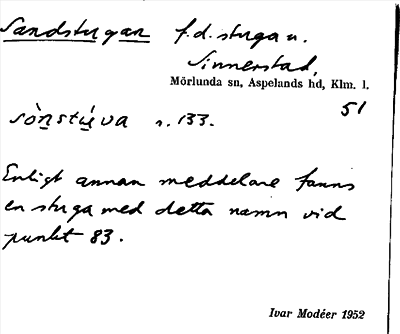 Sandstugan f.d. stuga u.
Sinnerstad,
Mörlunda sn, Aspelands hd, Klm. l.
51
sònstúva s. 133.
Enligt annan meddelare fanns
en stuga med detta namn vid
punkt 83.
Ivar Modéer 1952